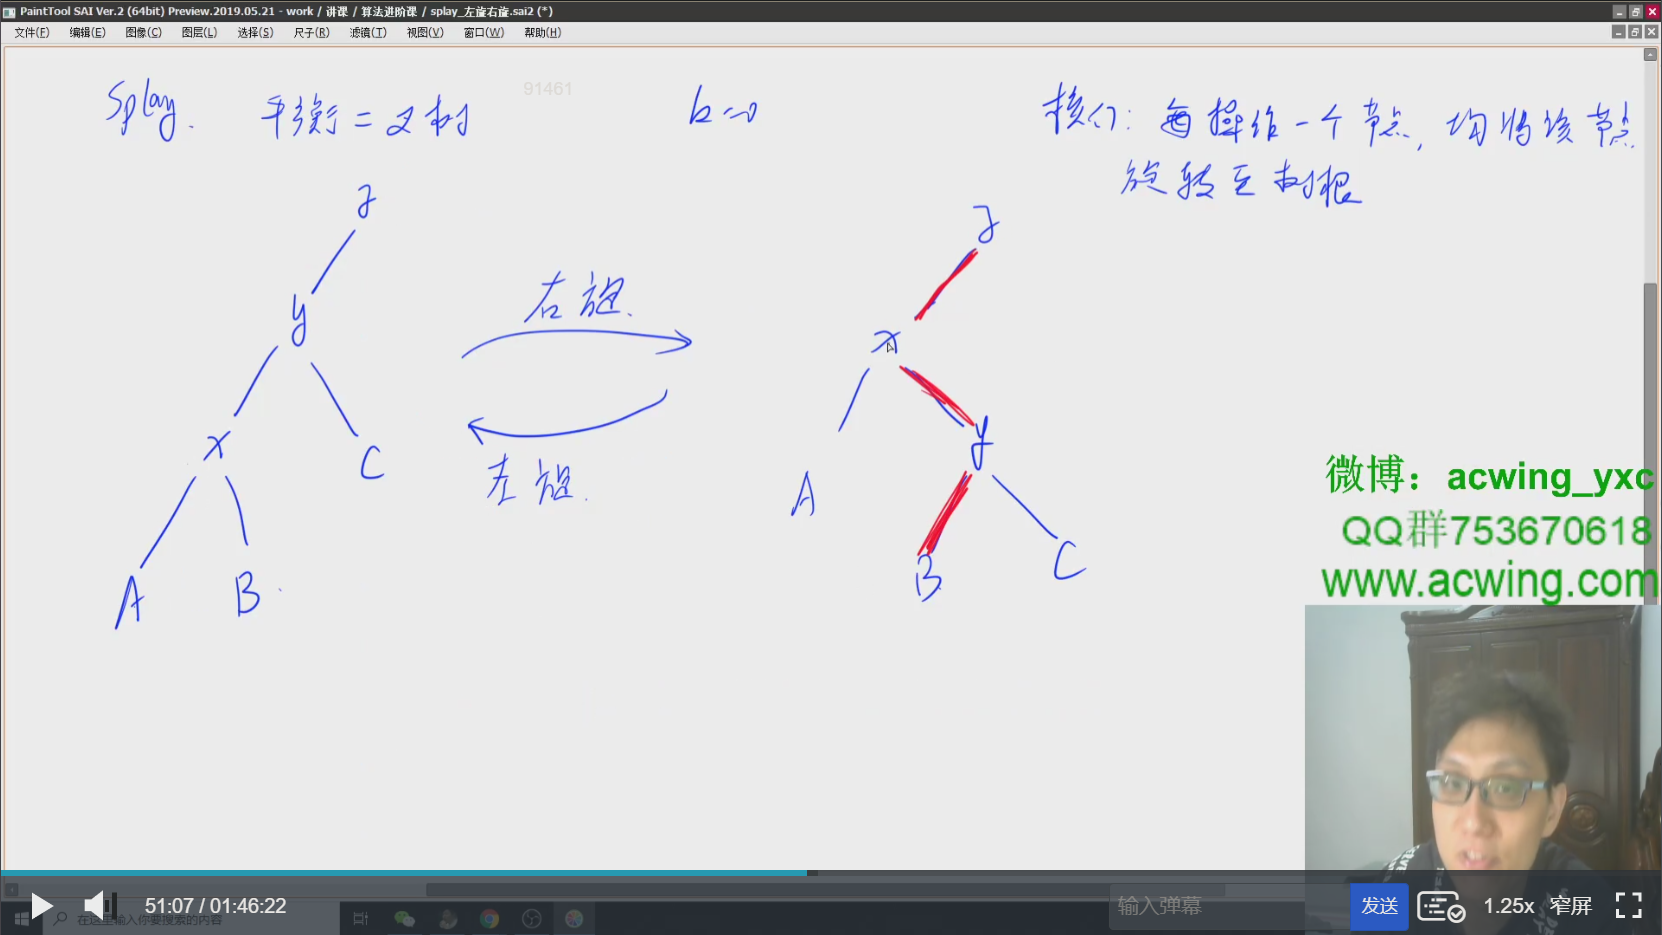 PaintTool SAI Ver.2 (64bit) Preview.2019.05.21 - work / 讲课 / 算法进阶课 / splay_左旋右旋.sai2 (*)
文件(F) 编辑(E) 图像(C) 图层(L) 选择(S) 尺子(R) 滤镜(T) 视图(V) 窗口(W) 帮助(H)
91461
Splay. 平衡二叉树
核心: 每操作一个节点, 均将该节点
旋转至树根
z
z
右旋.
y
x
x
C
y
左旋.
A
A
B
B
C
微博：acwing_yxc
QQ群753670618
www.acwing.com
51:07 / 01:46:22
在这里输入你要搜索的内容
输入弹幕
发送
1.25x
窄屏